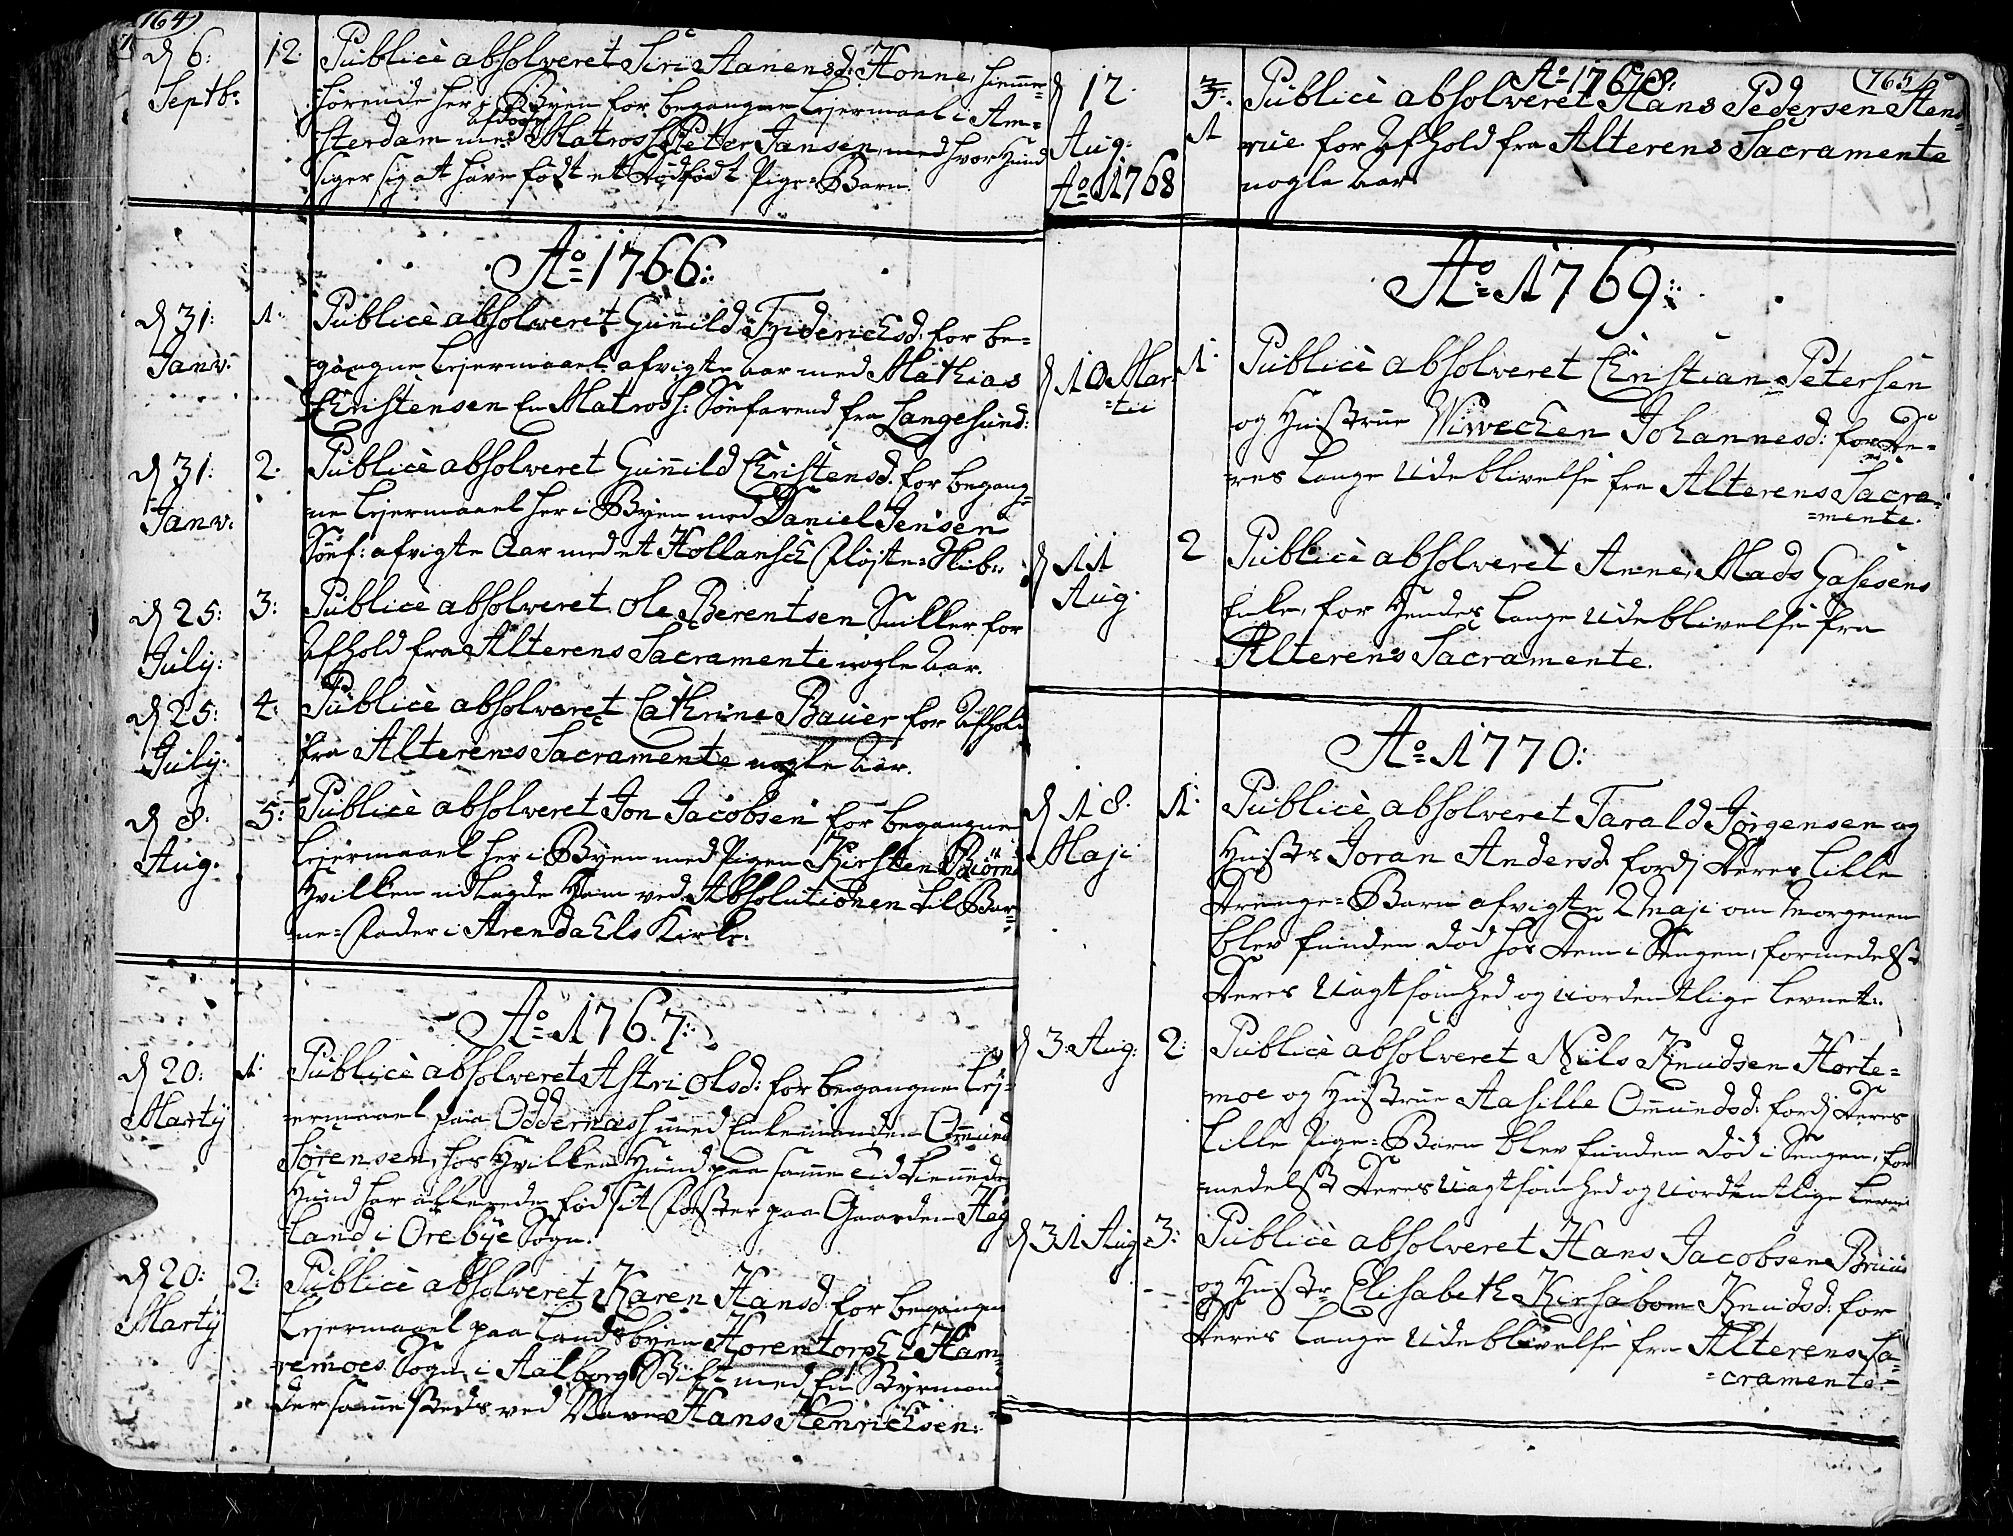 164)
d 6: Septbr: 12: Publicè absolveret Siri Aanensd: Honne, hiemme=
hørende her i Byen for begangne Lejermaal i Am=
sterdam med afdøde Matros Peter Jansen, med hvor Hund
siger sig at have født et Dødfødt Pige=Barn.
Ao 1766:
d 31: Janv: 1: Publicè absolveret Gunnild Friderichsd: for be=
gangne Lejermaael afvigte Aar med Mathias
Christensen En Matros h: Søefarend fra Langesund:
d 31: Janv: 2: Publicè absolveret Gunnild Christensd. for begang=
ne Lejermaael her i Byen med Daniel Jensen
Søef: afvigte Aar med et Hollansch Fløjte=Skib:
d 25: July: 3: Publicè absolveret Ole Berentsen Sniller for
Afhold fra Alterens Sacramente nogle Aar.
d 25: July: 4: Publicè absolveret Cathrine Bauer for Afhold
fra Alterens Sacramente nogle Aar.
d 8: Aug: 5: Publicè absolveret Jon Jacobsen for begangne
Lejermaael her i Byen med Pigen Kirsten Biørns
hvilken udlagde Ham ved Absolutionen til Bar=
ne=Fader i Arendahls Kirke.
Ao 1767:
d 20: Marty 1: Publicè absolveret Astri Olsd: for begangne Lej=
ermaael paa Oddernæs h med Enkemanden Omund
Sørensen, hos Hvilken Hund paa samme Tid tiennede
Hund har allerede fød sit Foster paa Gaarden Hag
land i Orebye Sogn.
d 20: Marty 2: Publicè absolveret Karen Hansd: for begangne
Lejermaael paa Landsbyen Horentorp i Ham=
remoes Sogn i Aalborg Stift med En Byemand
der samme steds ved Navn Hans Henrichsen:
Ao 1768: 765
d 12. Aug: Ao 1768 3: 1 Publicè absolveret Hans Pedersen Stens=
rue for Afhold fra Alterens Sacramente
nogle Aar
Ao 1769:
d 10 Mar=tii 1: Publicè absolveret Christian Petersen
og Hustrue Wivechen Johannesd: for De=
res lange Udeblivelse fra Alterens Sacra=
=mente.
d 11 Aug. 2 Publicè absolveret Anne, Mads Gasesens
Enke, for Hendes lange Udeblivelse fra
Alterens Sacramente.
Ao 1770:
d 18. Maji 1: Publicè absolveret Tarald Jørgensen og
Hustr Joran Andersd: fordj Deres lille
Drenge=Barn afvigte 2 Maji om Morgenen
blev funden død hos Dem i Sengen, formedelst
Deres Uagtsomhed og uordentlige Levnet.
d 3. Aug: 2: Publicè absolveret Niels Knudsen Horte=
moe og Hustrue Aasille Omundsd: fordj Deres
lille Pige=Barn blev funden død i Sengen, for
medelst Deres Uagtsomhed og Uordentlige Levne
d 31 Aug 3: Publicè absolveret Hans Jacobsen Bruus
og Hustr Elisabeth Kirsabom Knudsd: for
Deres lange Udeblivelse fra Alterens Sa=
=cramente.